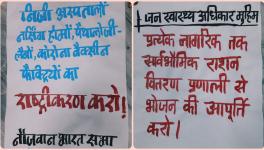 निजी अस्पतालों
नर्सिंग होमों, पैथालोजी-
लैबों, कोरोना वैक्सीन
फैक्ट्रियों का
राष्ट्रीकरण करो!
नौजवान भारत सभा
जन स्वास्थ्य अधिकार मुहिम
प्रत्येक नागरिक तक
सार्वभौमिक राशन
वितरण प्रणाली से
भोजन की आपूर्ति
करो।